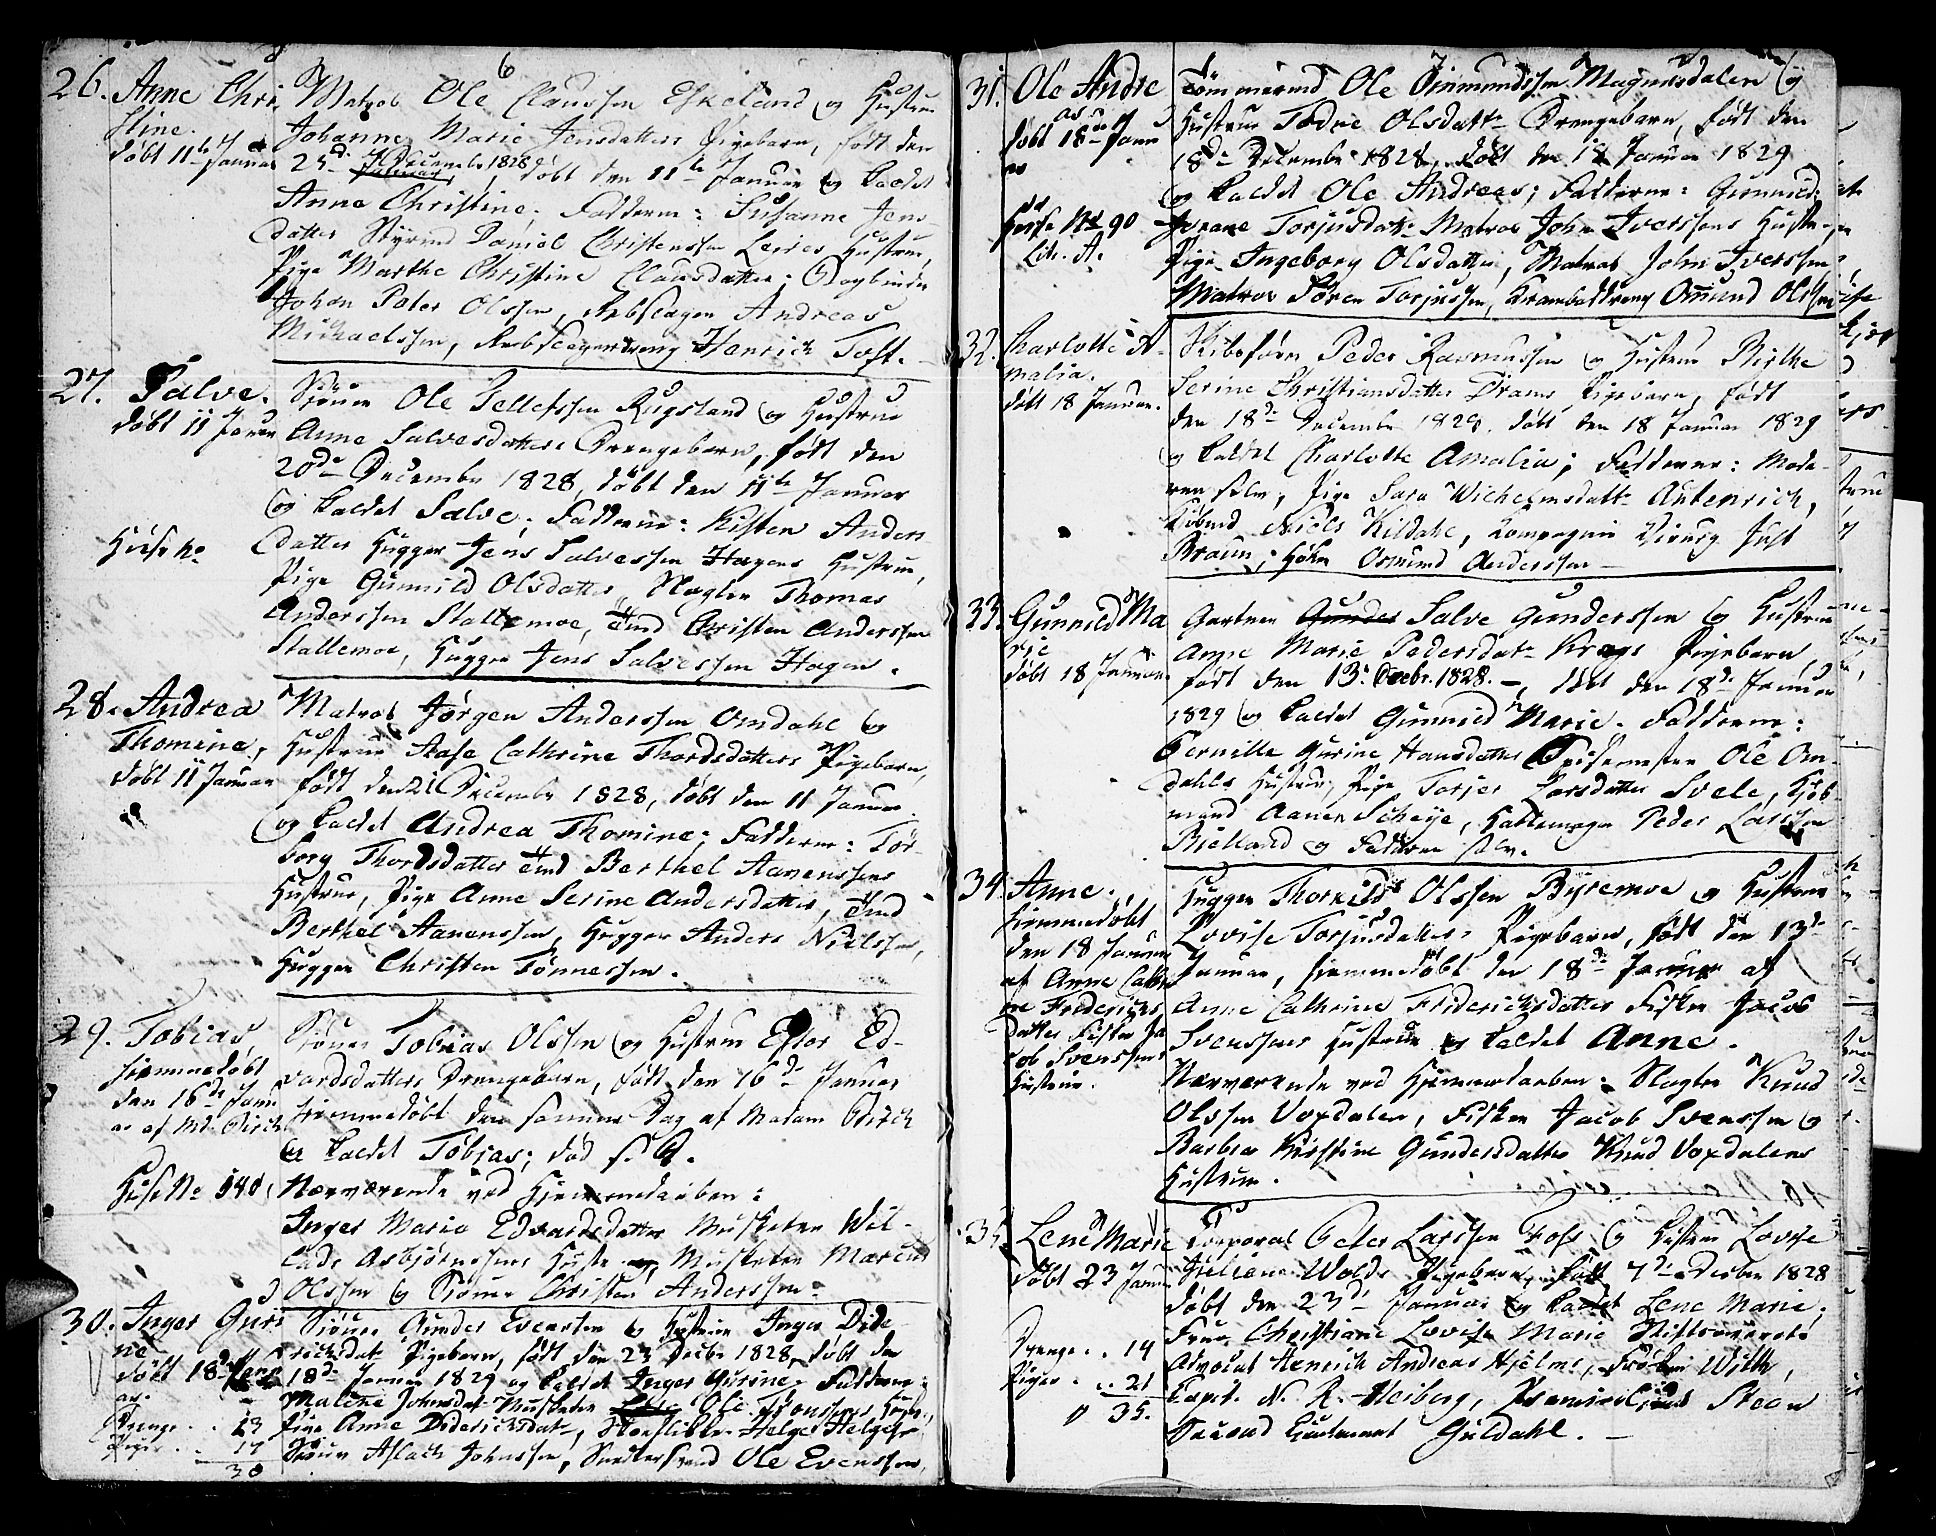 6
26. Anne Chri
stine.
døbt 11te Januar
Matros Ole Claussen Eskeland og Hustrue
Johanne Marie Jensdatters Pigebarn, født den
25de December 1828, døbt den 11te Januar og kaldet
Anne Christine. Fadderne: Susanne Jens
datter Styrmd Daniel Christenssen Hustrue,
Pige Marthe Christine Clausdatter; Bogbinder
Johan Peter Olssen, Rebslager Andreas
Michaelssen, Rebslagerdreng Henrich Toft.
27. Salve.
døbt 11 Januar
Huse No
Sjøum Ole Sellefssen Rugsland og Hustrue
Anne Salvesdatters Drengebarn, født den
20de December 1828, døbt den 11te Januar
og kaldet Salve; Fadderne: Kisten Anders
datter Hugger Jens Salvessen Hagens Hustrue,
Pige Gunnild Olsdatter, Slagter Thomas
Anderssen Stallemoe, Tmd Christen Anderssen
Stallemoe, Hugger Jens Salvessen Hagen.
28. Andrea
Thomine,
døbt 11 Januar
Matros Jørgen Anderssen Omdahl og
Hustrue Aase Cathrine Thordsdatters Pigebarn,
født den 21 December 1828, døbt den 11 Januar
og kaldet Andrea Thomine; Fadderne: Tor-
borg Thordsdatter Tmd Berthel Aanenssens
Hustrue, Pige Anne Serine Andersdatter, Tmd
Berthel Aanenssen, Hugger Anders Nielssen,
Hugger Christen Tønnessen.
29. Tobias,
hjemmedøbt
den 16de Janu
ar af Md. Birch
Huse No 540
Sjøum Tobias Olssen og Hustrue Ester Ed-
vardsdatters Drengebarn, født den 16de Januar
hjemmedøbt den samme Dag af Madam Birch
og kaldet Tobias; død s. D.
Nærværende ved Hjemmedaaben:
Inger Maria Edvardsdatter Musketer Wil-
lads Asbjørnssens Hustr. og Musketer Marcus
Olssen og Sjøum Christen Anderssen.
30. Inger Guri
ne
døbt 18de Janu
ar.
Drenge .. 13
Piger .. 17
30
Sjøum Gunder Evensen og Hustrue Inger Dide-
richsdatr Pigebarn, født den 23 Decbr 1828, døbt den
18de Januar 1829 og kaldet Inger Gurine. Fadderne:
Malene Johnsdatr Musketer Ole Tronssens Hustr.,
Pige Anne Diderichsdatr, Helge Helgess
Sjøum Aslach Johnssen, Snedkersvend Ole Evenssen,
7
31. Ole Andre
as
døbt 18de Janu
ar
Huse No 90
Litr. A.
Tømmermd Ole Omundssen Magnusdalen og
Hustrue Todne Olsdattr Drengebarn, født den
18de December 1828, døbt den 18 Januar 1829
og kaldet Ole Andreas; Fadderne: Gunnild
Torjusdatr Matros John Iverssens Hustr.
Pige Ingeborg Olsdatter, Matros John Iverssen,
Matros Søren Torjussen, Kramboddreng Omund Olssen
32. Charlotte A-
malia.
døbt 18 Januar.
Skibsfører Peder Rasmussen og Hustrue Birthe
Serine Christiansdatter Drams Pigebarn, født
den 18de December 1828. døbt den 18 Januar 1829
og kaldet Charlotte Amalia; Fadderne: Mode-
ren selv, Pige Sara Wichelmsdattr Autenrich,
Kjøbmd Niels Kildahl, Compagnie Chirurg Just
Braun, Høker Osmund Anderssen
33. Gunnild Ma
rie
døbt 18 Januar.
Gartner Salve Gunderssen og Hustrue
Anne Marie Pedersdatr Krags Pigebarn,
født den 13. Decbr. 1828. –, døbt den 18de Januar
1829 og kaldet Gunnild Marie. Fadderne:
Pernille Gurine Hansdatter Spisemester Ole Om-
dahls Hustrue, Pige Torjer Larsdatter Svele, Kjøb-
mand Aanen Scheye, Hattemager Peder Larssen
Bielland og Fadderen selv.
34. Anne.
hjemmedøbt
den 18 Januar
af Anne Cathri
ne Frederichs
datter Fisker Ja
cob Svenssens
Hustrue.
Hugger Thorkild Olssen Byremoe og Hustrue
Lovise Torjusdatters Pigebarn, født den 13de
Januar, hjemmedøbt den 18de Januar af
Anne Cathrine Friderichsdatter Fisker Jacob
Svenssens Hustrue og kaldet Anne.
Nærværende ved Hjemmedaaben: Slagter Knud
Olssen Voxdalen, Fisker Jacob Svenssen og
Barbra Kirstine Gundersdatter Knud Voxdalens
Hustrue.
35. Lene Marie
døbt 23 Janu
Drenge .. 14
Piger .. 21
35.
Corporal Peter Larssen Foss og Hustrue Lovise
Juliane Wolds Pigebarn, født 7de Decbr 1828
døbt den 23de Januar og kaldet Lene Marie;
Frue Christiane Lovise Marie Stiftsoverets
Advocat Henrich Andreas Hjelms, Frøken With,
Capit. N. R. Heiberg, Steen
Second Lieutenant Guldahl.